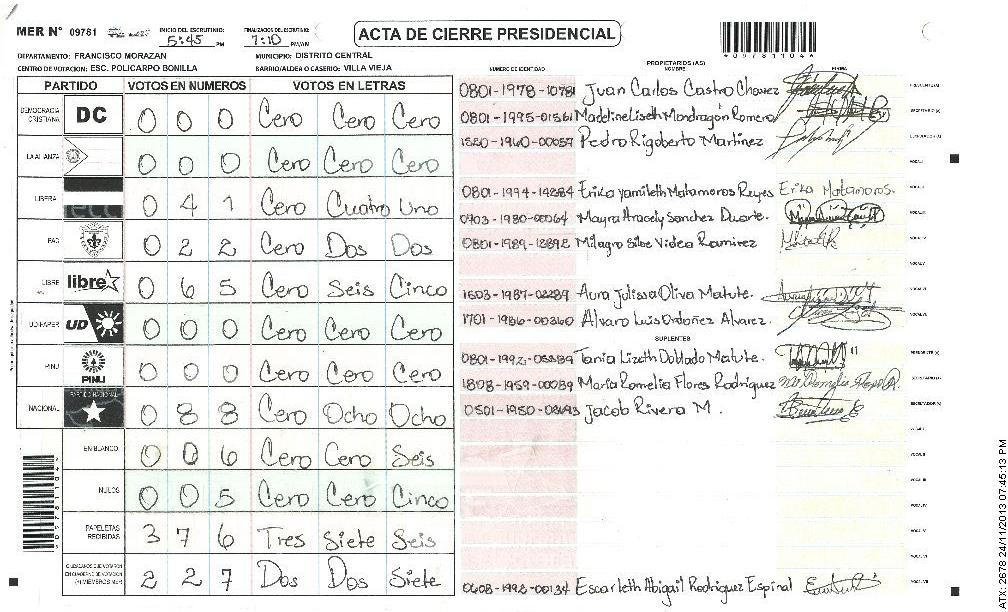 MER N° 09781
INICIO DEL ESCRUTINIO: 5:45 PM
FINALIZACION DEL ESCRUTINIO: 7:10 PM/AM
ACTA DE CIERRE PRESIDENCIAL
*09781104*
DEPARTAMENTO: FRANCISCO MORAZAN
MUNICIPIO: DISTRITO CENTRAL
CENTRO DE VOTACION: ESC. POLICARPO BONILLA
BARRIO/ALDEA O CASERIO: VILLA VIEJA
PARTIDO VOTOS EN NUMEROS VOTOS EN LETRAS
DEMOCRACIA CRISTIANA DC 0 0 0 Cero Cero Cero
LA ALIANZA 0 0 0 Cero Cero Cero
LIBERA 0 4 1 Cero Cuatro Uno
PAC 0 2 2 Cero Dos Dos
LIBRE libre 0 6 5 Cero Seis Cinco
UD-FAPER UD 0 0 0 Cero Cero Cero
PINU PINU 0 0 0 Cero Cero Cero
NACIONAL PARTIDO NACIONAL 0 8 8 Cero Ocho Ocho
EN BLANCO 0 0 6 Cero Cero Seis
NULOS 0 0 5 Cero Cero Cinco
PAPELETAS RECIBIDAS 3 7 6 Tres Siete Seis
CIUDADANOS QUE VOTARON EN CUADERNO DE VOTACION (+) MIEMBROS MER 2 2 7 Dos Dos Siete
PROPIETARIOS (AS)
NUMERO DE IDENTIDAD NOMBRE FIRMA
0801-1978-10781 Juan Carlos Castro Chavez PRESIDENTE (A)
0801-1995-01561 Madeline Liseth Mondragon Romero SECRETARIO (A)
Pedro Rigoberto Martinez ESCRUTADOR (A)
VOCAL I
0801-1994-14284 Erika Yamileth Matamoros Reyes Erika Matamoros.
0703-1980-00064 Mayra Aracely Sanchez Duarte.
0801-1989-12892 Milagro Silbe Videa Ramirez
1503-1987-02289 Aura Julissa Oliva Matute.
1701-1986-00360 Alvaro Luis Ordoñez Alvarez.
SUPLENTES
Tania Lizeth Doblado Matute. PRESIDENTE (A)
1808-1959-00089 Maria Romelia Flores Rodriguez SECRETARIO (A)
Jacob Rivera M. ESCRUTADOR (A)
0608-1992-00134 Escarleth Abigail Rodriguez Espinal VOCAL VII
24/11/2013 07:45:13 PM